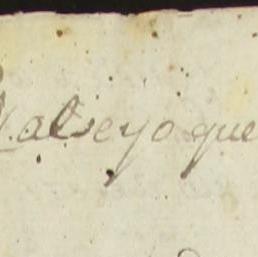 alse yo que